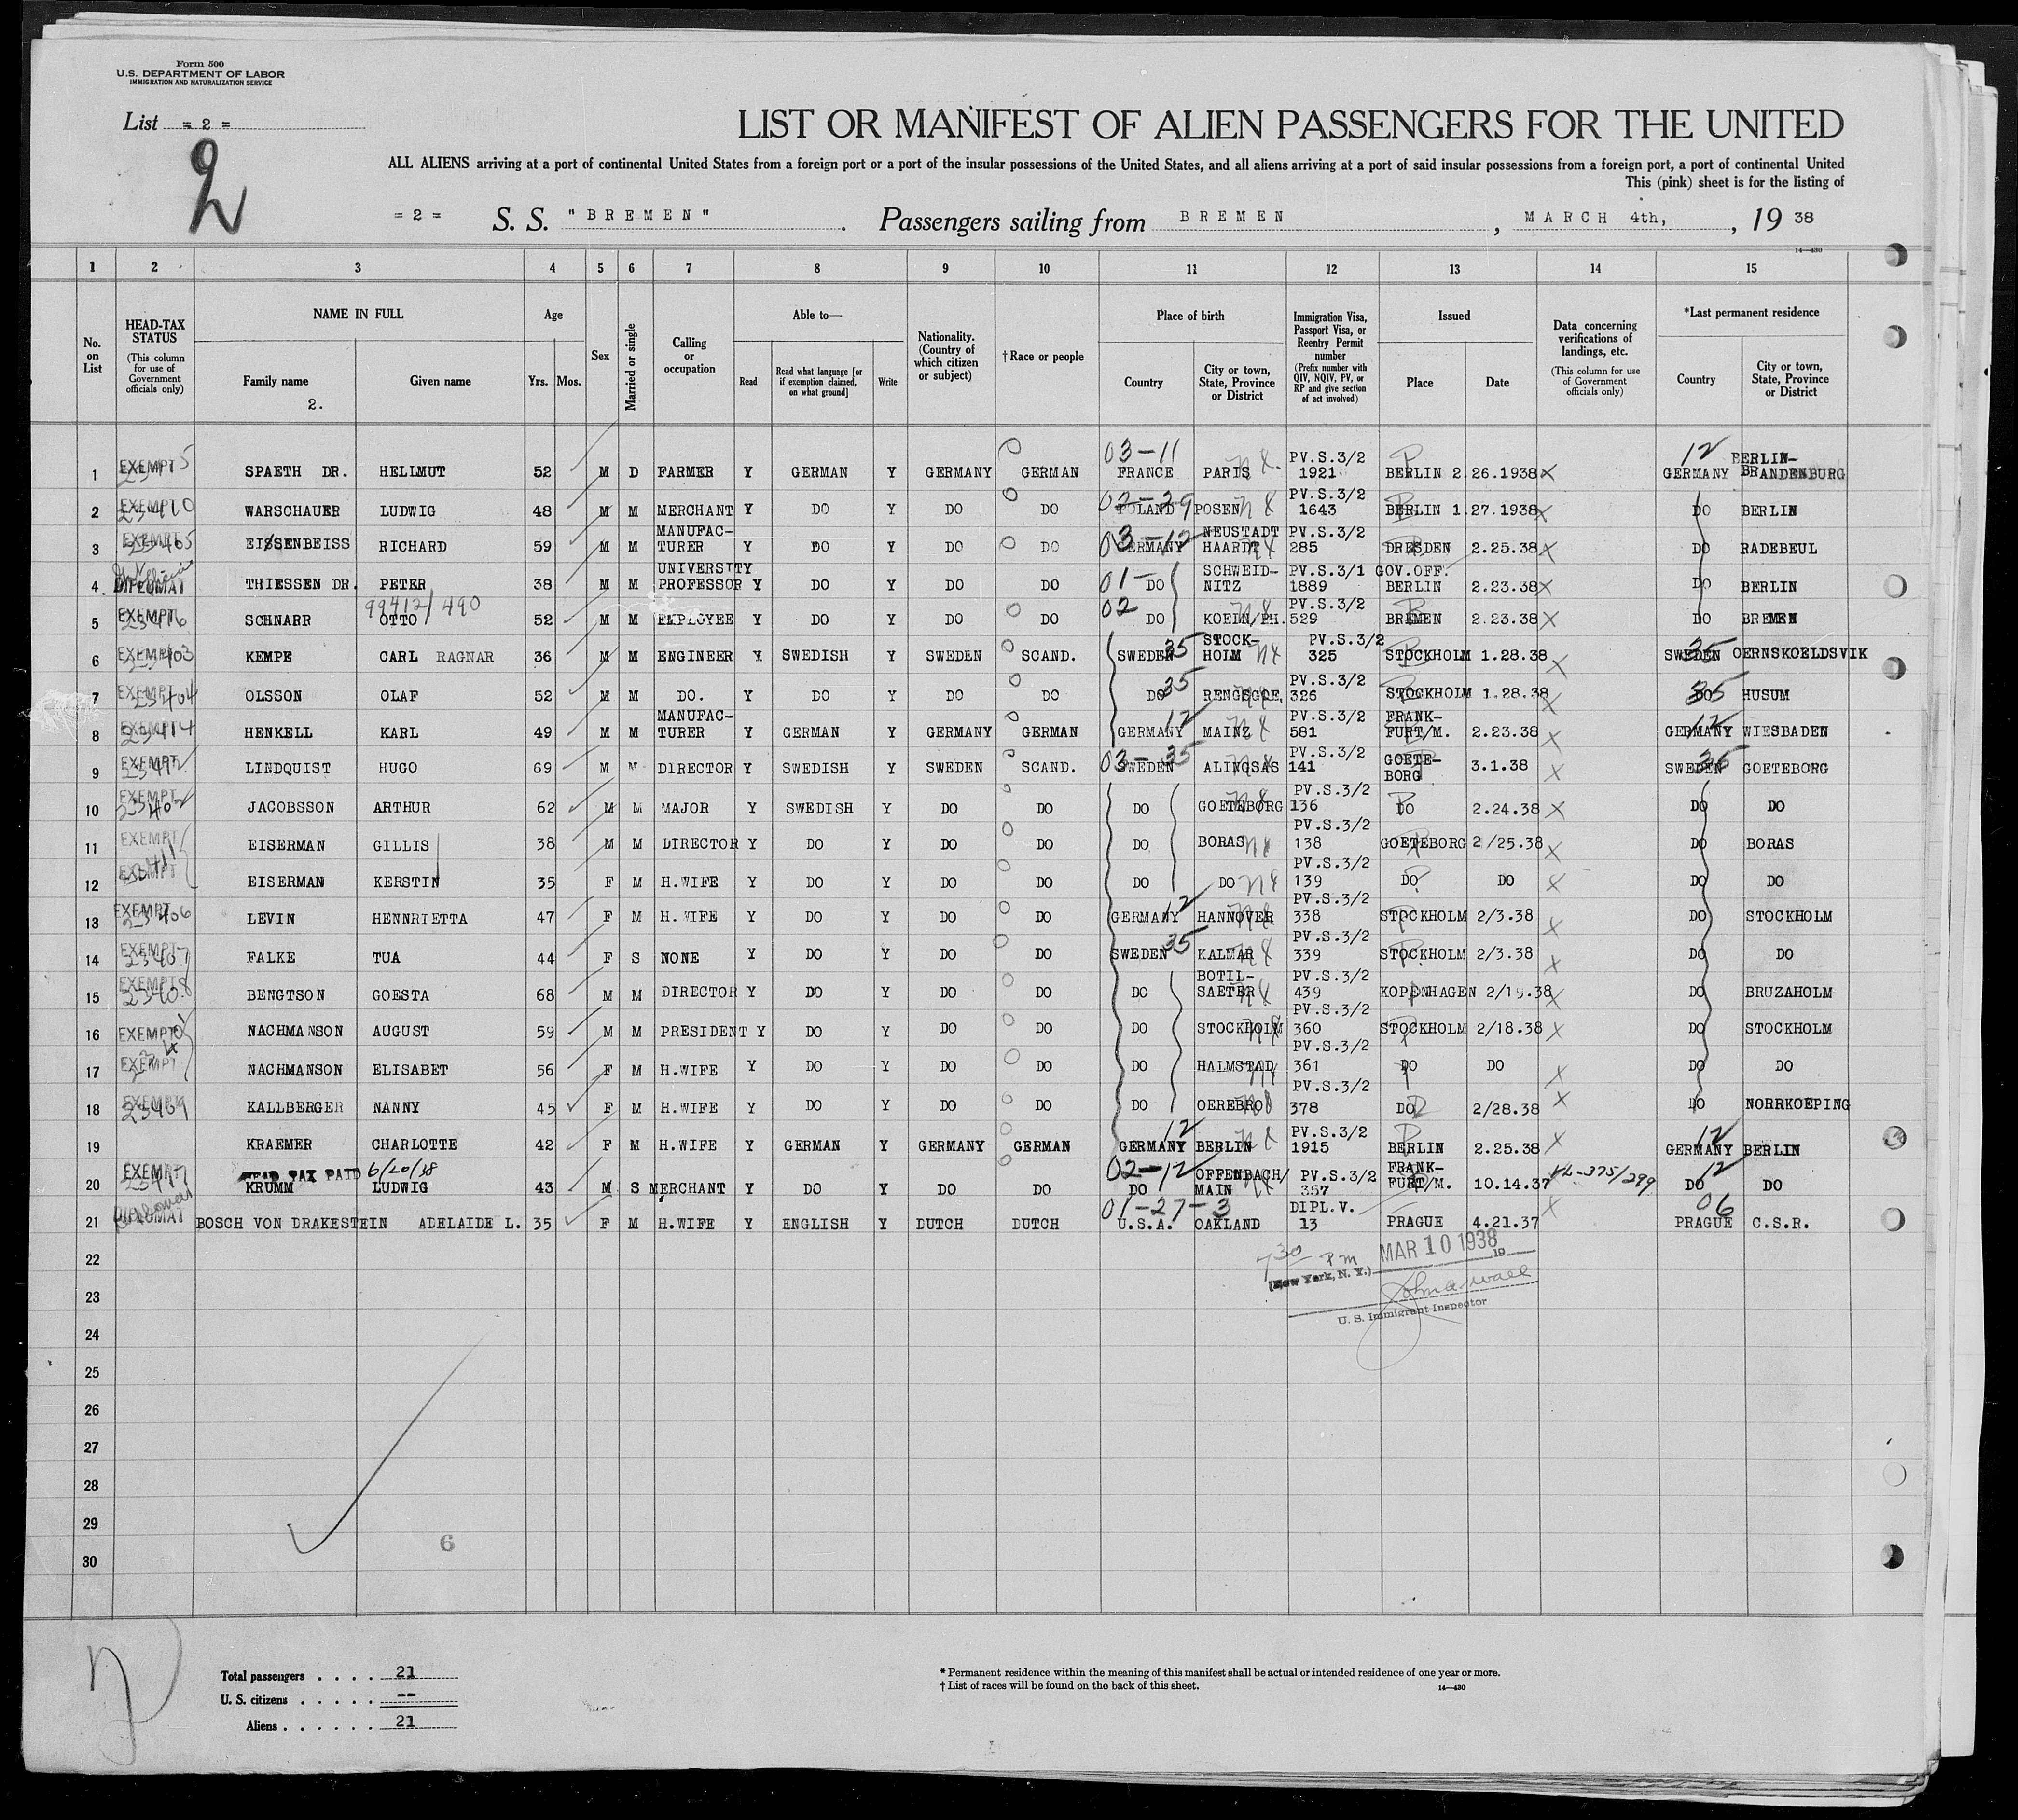 Form 500
U.S. DEPARTMENT OF LABOR
IMMIGRATION AND NATURALIZATION SERVICE
List = 2 =
2
LIST OR MANIFEST OF ALIEN PASSENGERS FOR THE UNITED
ALL ALIENS arriving at a port of continental United States from a foreign port or a port of the insular possessions of the United States, and all aliens arriving at a port of said insular possessions from a foreign port, a port of continental United
This (pink) sheet is for the listing of
= 2 = S. S. "BREMEN" . Passengers sailing from BREMEN , MARCH 4th, , 19 38
14—430
1 2 3 4 5 6 7 8 9 10 11 12 13 14 15
No. on List
HEAD-TAX STATUS (This column for use of Government officials only)
NAME IN FULL Family name Given name
2.
Age Yrs. Mos.
Sex
Married or single
Calling or occupation
Able to— Read Read what language [or if exemption claimed, on what ground] Write
Nationality. (Country of which citizen or subject)
† Race or people
Place of birth Country City or town, State, Province or District
Immigration Visa, Passport Visa, or Reentry Permit number (Prefix number with QIV, NQIV, PV, or RP and give section of act involved)
Issued Place Date
Data concerning verifications of landings, etc. (This column for use of Government officials only)
*Last permanent residence Country City or town, State, Province or District
1 EXEMPT SPAETH DR. HELLMUT 52 M D FARMER Y GERMAN Y GERMANY GERMAN 03-11 FRANCE PARIS PV.S.3/2 1921 BERLIN 2.26.1938 X 12 GERMANY BERLIN-BRANDENBURG
2 EXEMPT WARSCHAUER LUDWIG 48 M M MERCHANT Y DO Y DO DO 02-29 POLAND POSEN PV.S.3/2 1643 BERLIN 1.27.1938 X DO BERLIN
3 EXEMPT EISSENBEISS RICHARD 59 M M MANUFAC-TURER Y DO Y DO DO 03-12 GERMANY NEUSTADT HAARDT PV.S.3/2 285 DRESDEN 2.25.38 X DO RADEBEUL
4 DIPLOMAT THIESSEN DR. PETER 38 M M UNIVERSITY PROFESSOR Y DO Y DO DO 01- DO SCHWEID-NITZ PV.S.3/1 GOV.OFF. 1889 BERLIN 2.23.38 X DO BERLIN
99412/490
5 EXEMPT SCHNARR OTTO 52 M M EMPLOYEE Y DO Y DO DO 02 DO KOELN/RH. PV.S.3/2 529 BREMEN 2.23.38 X DO BREMEN
6 EXEMPT KEMPE CARL RAGNAR 36 M M ENGINEER Y SWEDISH Y SWEDEN SCAND. SWEDEN 35 STOCK-HOLM PV.S.3/2 325 STOCKHOLM 1.28.38 X SWEDEN 35 OERNSKOELDSVIK
7 EXEMPT 23404 OLSSON OLAF 52 M M DO. Y DO Y DO DO DO 35 PV.S.3/2 326 STOCKHOLM 1.28.38 X DO 35 HUSUM
8 EXEMPT HENKELL KARL 49 M M MANUFAC-TURER Y GERMAN Y GERMANY GERMAN GERMANY 12 MAINZ PV.S.3/2 581 FRANK-FURT/M. 2.23.38 X GERMANY 12 WIESBADEN
9 EXEMPT LINDQUIST HUGO 69 M M DIRECTOR Y SWEDISH Y SWEDEN SCAND. 03-35 SWEDEN ALINGSAS PV.S.3/2 141 GOETE-BORG 3.1.38 X SWEDEN 35 GOETEBORG
10 EXEMPT 23402 JACOBSSON ARTHUR 62 M M MAJOR Y SWEDISH Y DO DO DO GOETEBORG PV.S.3/2 136 DO 2.24.38 X DO DO
11 EXEMPT EISERMAN GILLIS 38 M M DIRECTOR Y DO Y DO DO DO BORAS PV.S.3/2 138 GOETEBORG 2/25.38 X DO BORAS
12 EXEMPT EISERMAN KERSTIN 35 F M H.WIFE Y DO Y DO DO DO DO PV.S.3/2 139 DO DO X DO DO
13 EXEMPT 23406 LEVIN HENNRIETTA 47 F M H.WIFE Y DO Y DO DO GERMANY 12 HANNOVER PV.S.3/2 338 STOCKHOLM 2/3.38 X DO STOCKHOLM
14 EXEMPT FALKE TUA 44 F S NONE Y DO Y DO DO SWEDEN 35 KALMAR PV.S.3/2 339 STOCKHOLM 2/3.38 X DO DO
15 EXEMPT 23408 BENGTSON GOESTA 68 M M DIRECTOR Y DO Y DO DO DO BOTIL-SAETER PV.S.3/2 439 KOPENHAGEN 2/19.38 X DO BRUZAHOLM
16 EXEMPT NACHMANSON AUGUST 59 M M PRESIDENT Y DO Y DO DO DO STOCKHOLM PV.S.3/2 360 STOCKHOLM 2/18.38 X DO STOCKHOLM
17 EXEMPT NACHMANSON ELISABET 56 F M H.WIFE Y DO Y DO DO DO HALMSTAD PV.S.3/2 361 DO DO X DO DO
18 EXEMPT 23409 KALLBERGER NANNY 45 F M H.WIFE Y DO Y DO DO DO OEREBRO PV.S.3/2 378 DO 2/28.38 X DO NORRKOEPING
19 KRAEMER CHARLOTTE 42 F M H.WIFE Y GERMAN Y GERMANY GERMAN GERMANY 12 BERLIN PV.S.3/2 1915 BERLIN 2.25.38 X GERMANY 12 BERLIN
HEAD TAX PAID 6/20/38
20 EXEMPT KRUMM LUDWIG 43 M S MERCHANT Y DO Y DO DO 02-12 DO OFFENBACH/MAIN PV.S.3/2 367 FRANK-FURT/M. 10.14.37 VL-375/299 DO 12 DO
21 DIPLOMAT BOSCH VON DRAKESTEIN ADELAIDE L. 35 F M H.WIFE Y ENGLISH Y DUTCH DUTCH 01-27-3 U.S.A. OAKLAND DIPL.V. 13 PRAGUE 4.21.37 X 06 PRAGUE C.S.R.
22
730 PM MAR 10 1938 19
(New York, N. Y.)
23
John A Wall
U. S. Immigrant Inspector
24
25
26
27
28
29
6
30
Total passengers . . . . 21
U. S. citizens . . . . . --
Aliens . . . . . . 21
* Permanent residence within the meaning of this manifest shall be actual or intended residence of one year or more.
† List of races will be found on the back of this sheet.
14—430